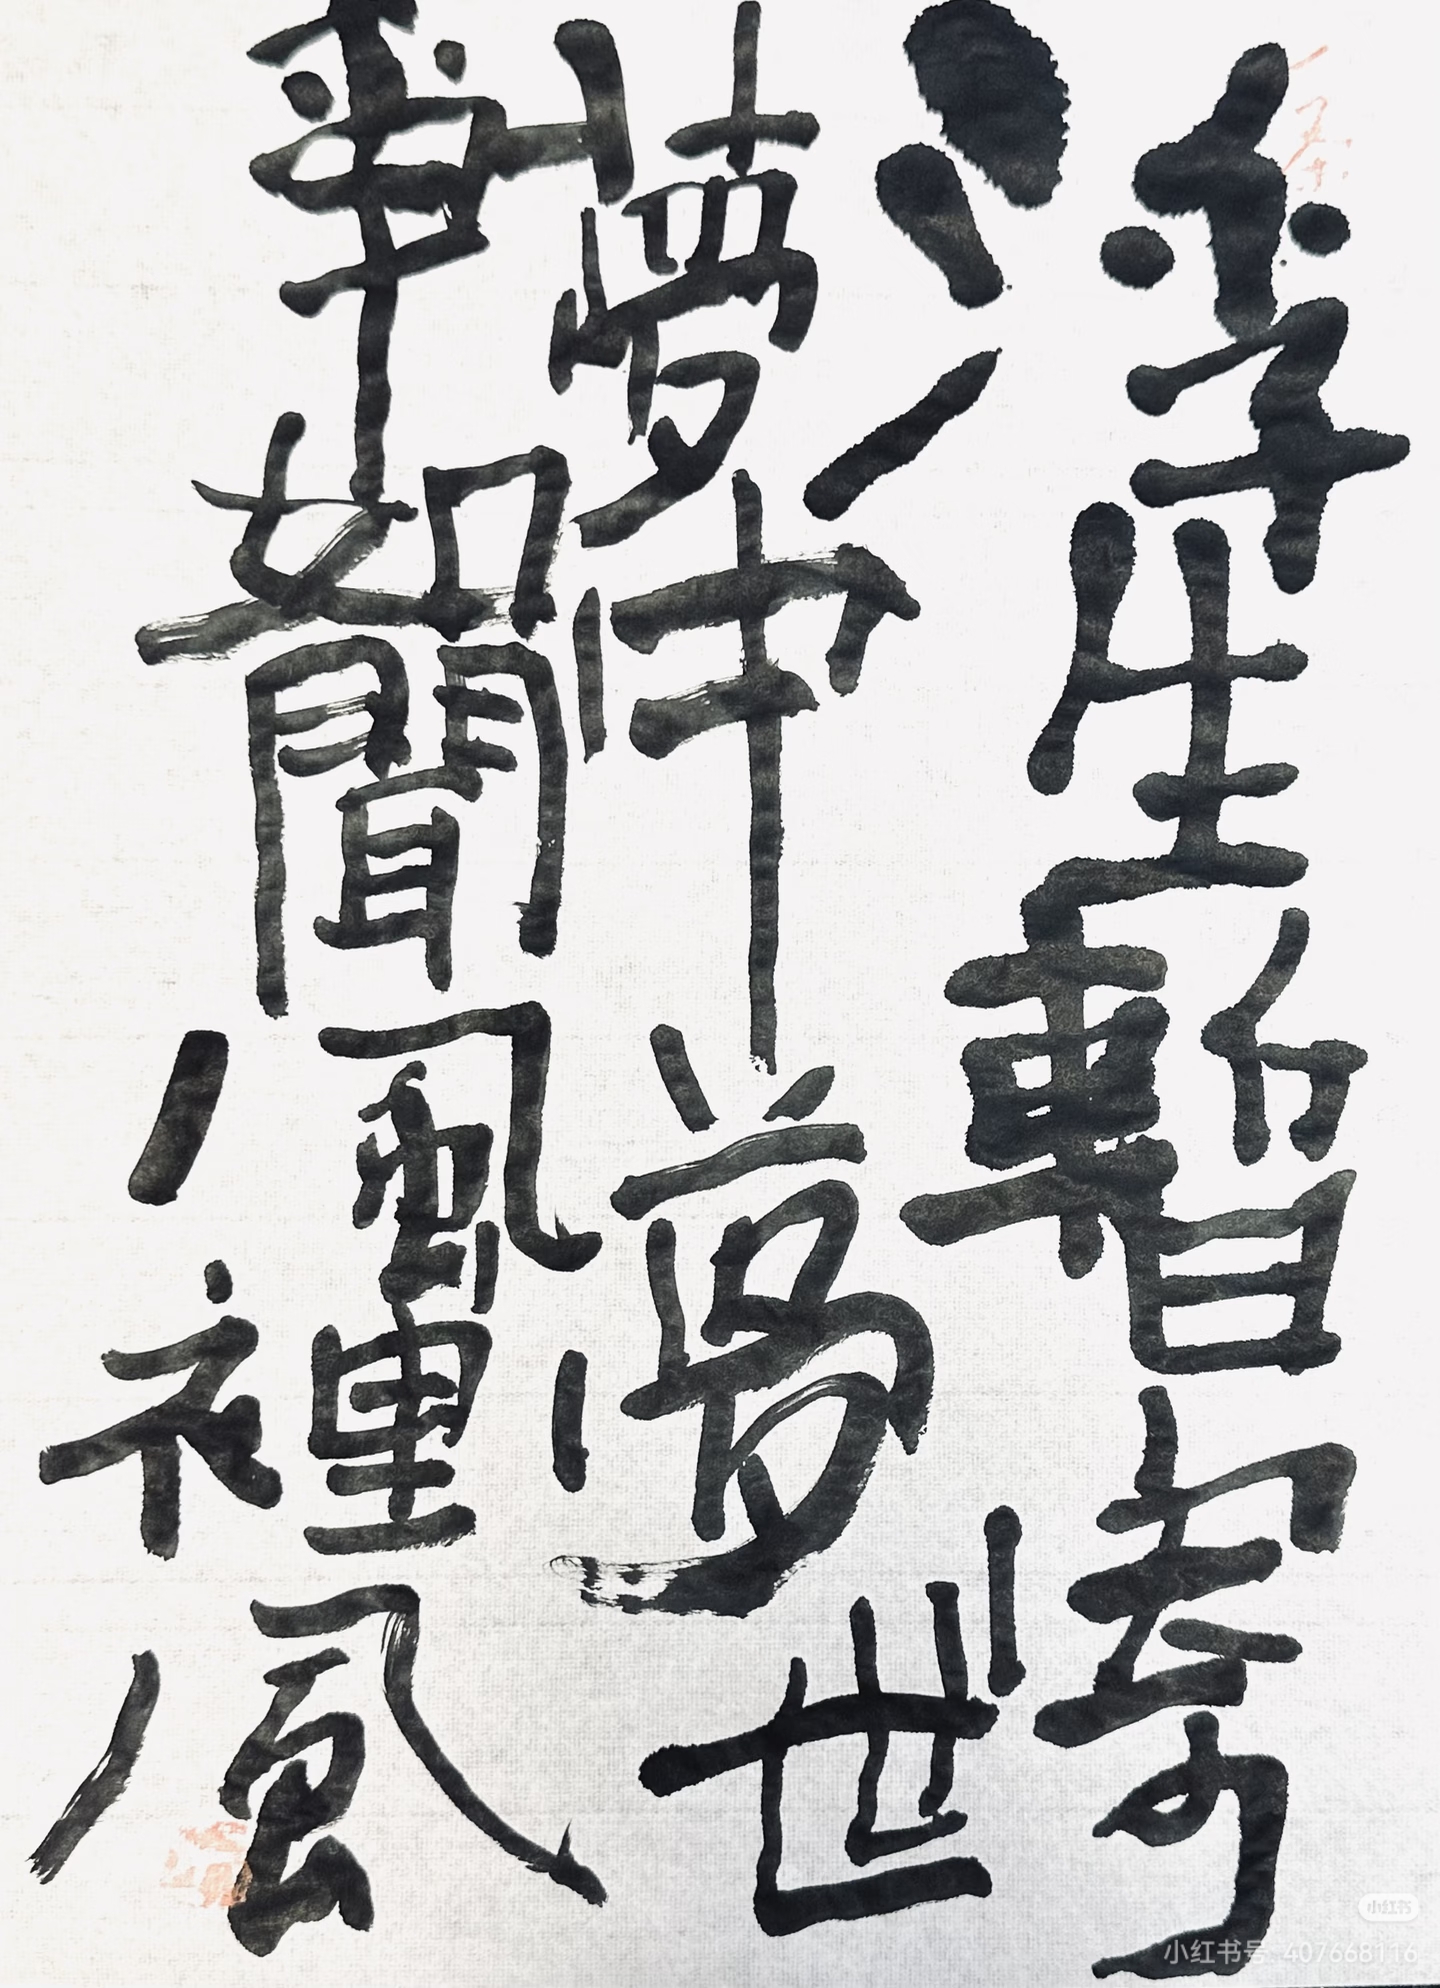 浮生暫寄
夢中夢世
事如聞風裡風
小红书
小红书号 407668116